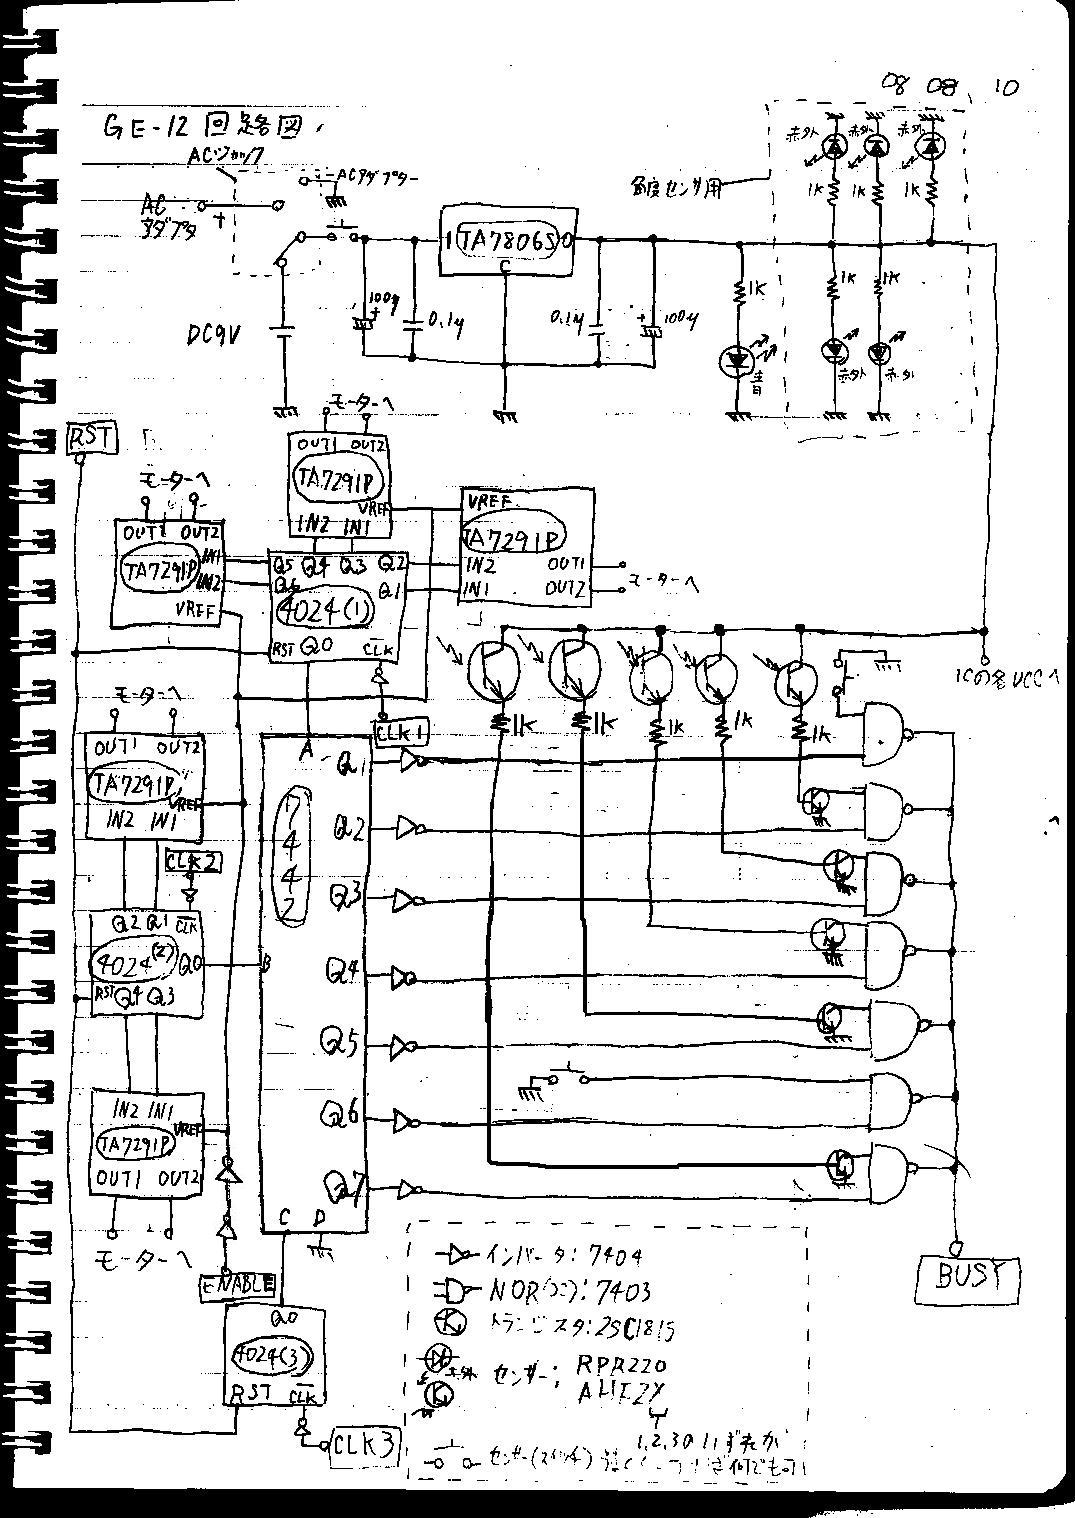 08 08 10
GE-12 回路図
ACジャック
ACアダプター
AC
アダプタ
+
DC9V
I TA7806S O
C
100μ
+
0.1μ
0.1μ
+
100μ
1K
青
角度センサ用
赤外 赤外 赤外
1K 1K 1K
1K 1K
赤外 赤外
RST
モーターへ
OUT1 OUT2
TA7291P
VREF
IN2 IN1
モーターへ
OUT1 OUT2
TA7291P
IN1
IN2
VREF
VREF
TA7291P
IN2 OUT1
IN1 OUT2
モーターへ
Q5 Q4 Q3 Q2
Q6 Q1
4024(1)
RST Q0 CLK
CLK1
ICの各VCCへ
1K 1K 1K 1K 1K
モーターへ
OUT1 OUT2
TA7291P
VREF
IN2 IN1
CLK2
Q2 Q1 CLK
4024(2) Q0
RST Q4 Q3
IN2 IN1
TA7291P VREF
OUT1 OUT2
モーターへ
A
B
C D
7442
Q1
Q2
Q3
Q4
Q5
Q6
Q7
ENABLE
Q0
4024(3)
RST CLK
CLK3
BUSY
インバータ:7404
7403
トランジスタ:2SC1815
赤外
センサー: RPR220
センサー(スイッチ)